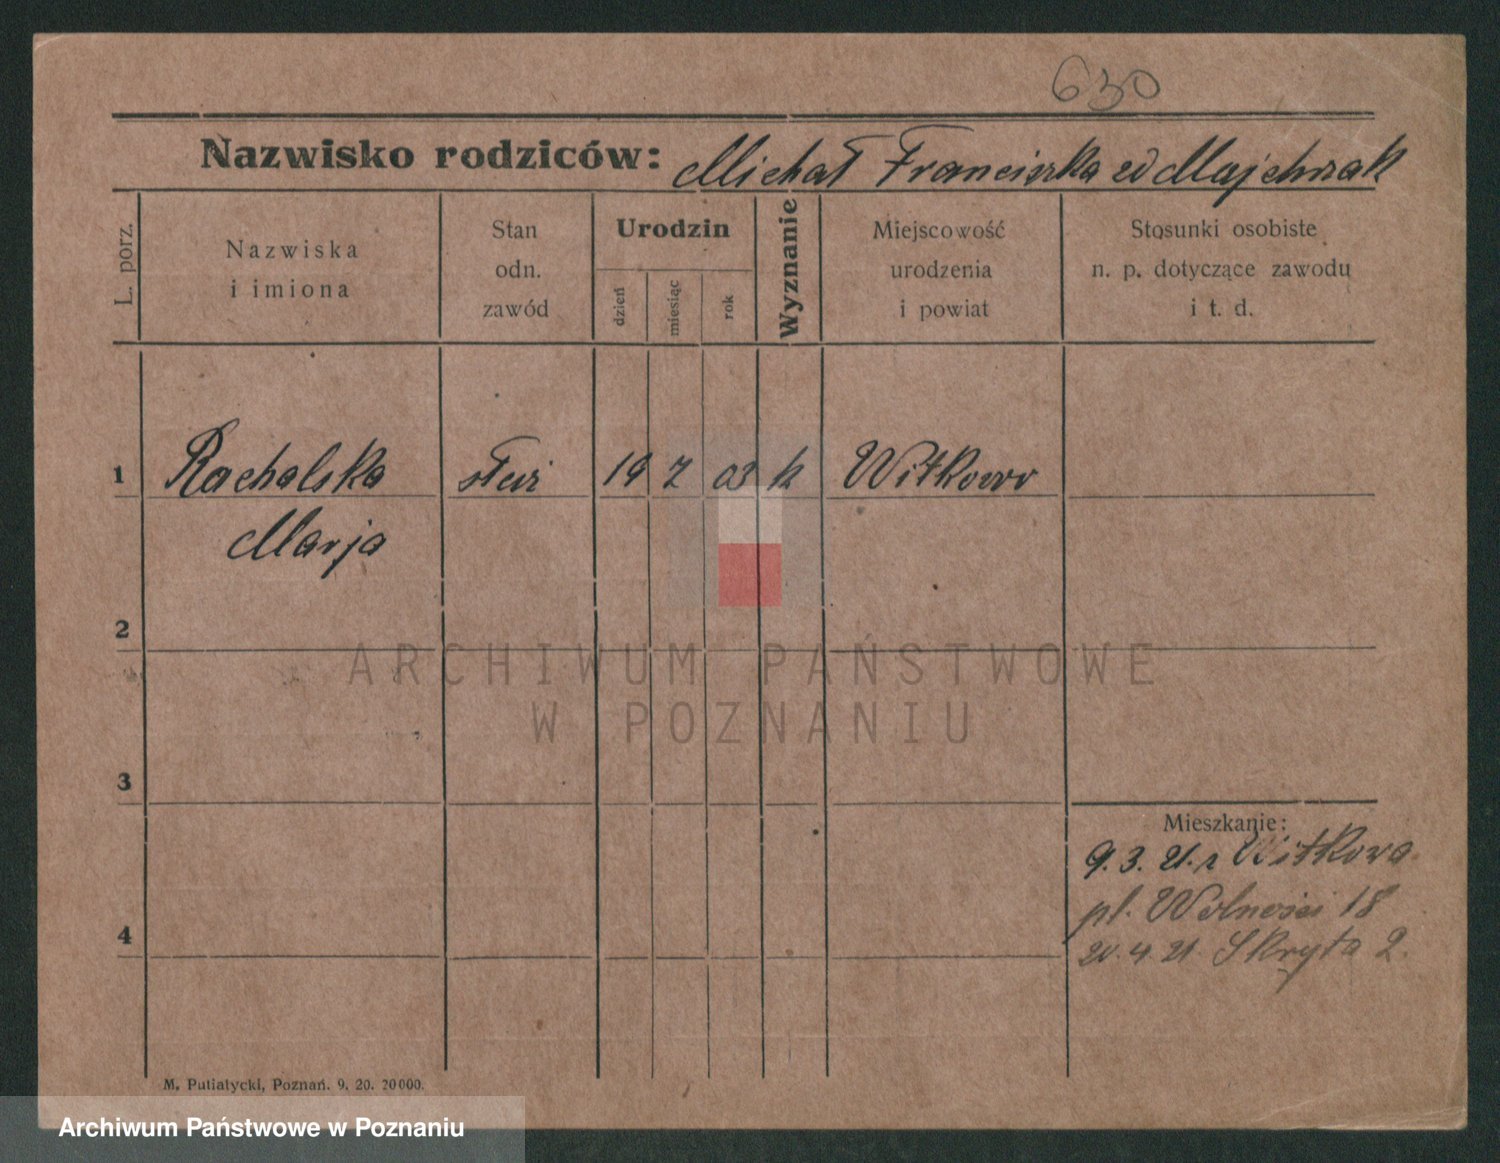 630
Nazwisko rodziców: Michał Franciszka zd Majchrzak
L. porz.
Nazwiska
i imiona
Stan
odn.
zawód
Urodzin
dzień
miesiąc
rok
Wyznanie
Miejscowość
urodzenia
i powiat
Stosunki osobiste
n. p. dotyczące zawodu
i t. d.
1 Rachalska służ 19 7 03 k Witkowo
Marja
2
ARCHIWUM PAŃSTWOWE
W POZNANIU
3
Mieszkanie:
9.3.21. z Witkowa
pl. Wolności 18
4
20.4.21 Skryta 2.
M. Putiatycki, Poznań. 9. 20. 20000.
Archiwum Państwowe w Poznaniu